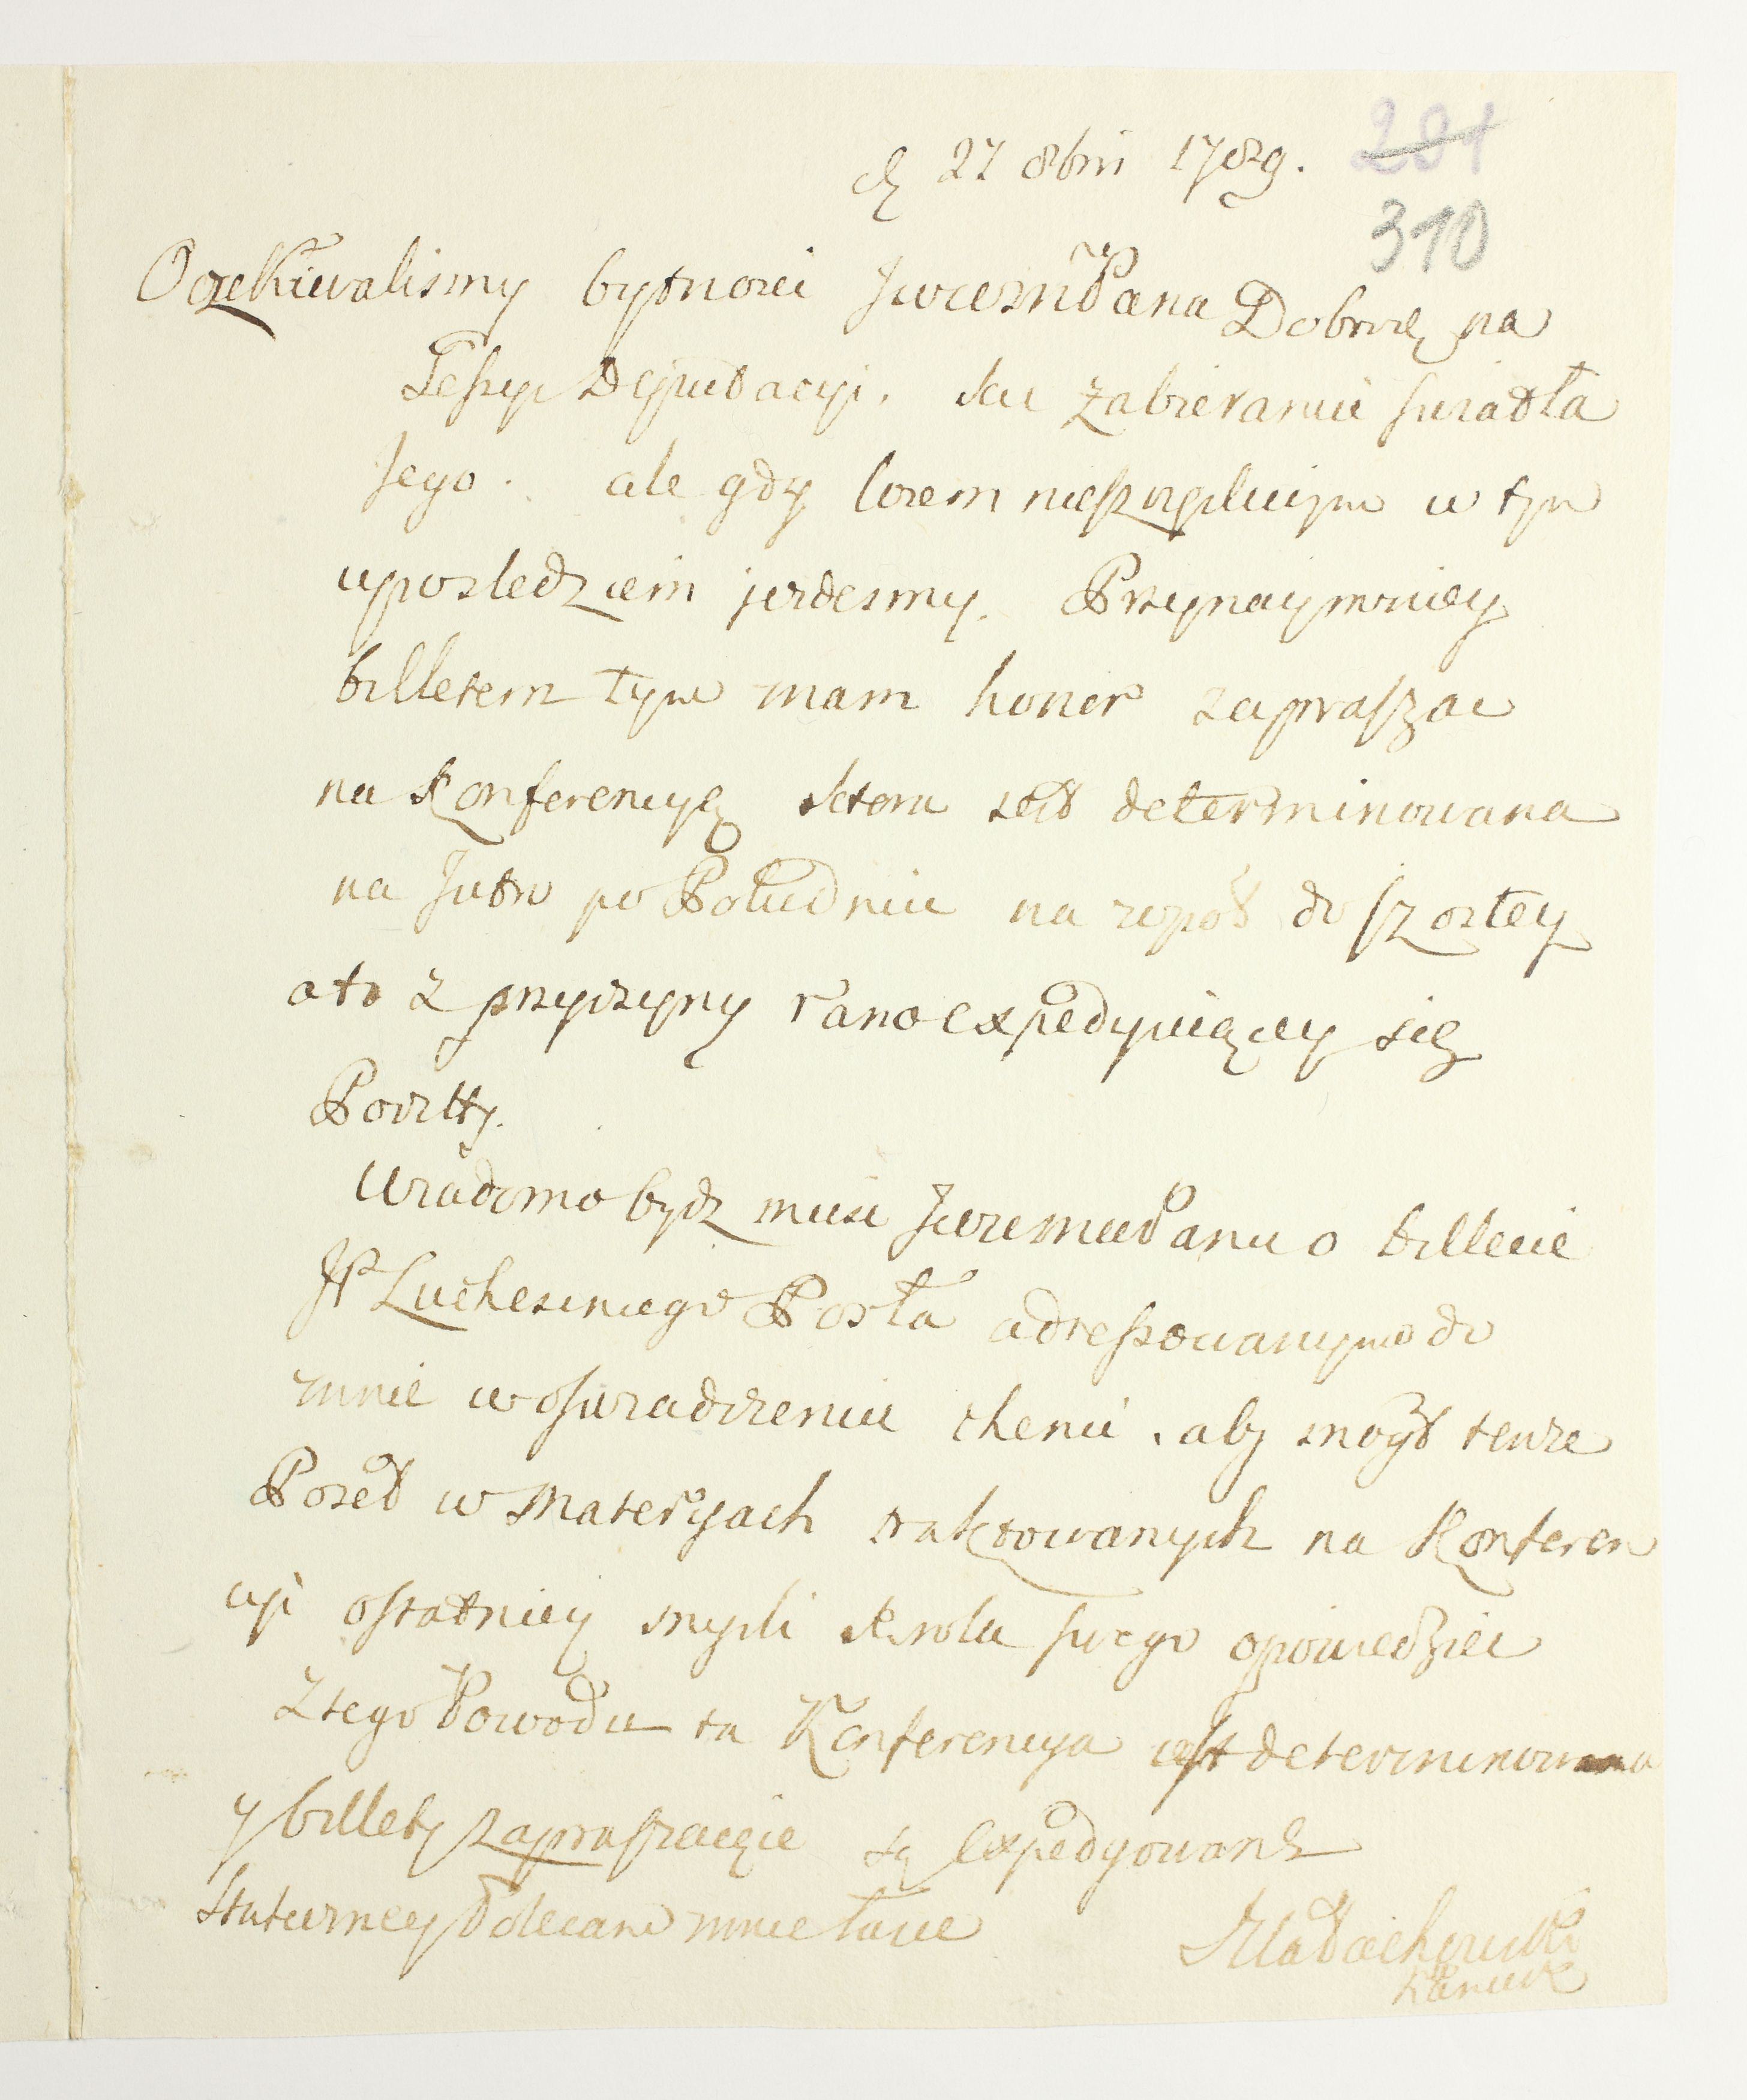 d 27 8bri 1789.
281
310
Oczekiwalismy bytnosci Jwcemci Pana Dobrze na
Seßyi Deputacyi. ku zabieraniu swiatła
Jego. ale gdy losem nieszczęsliwym w tym
uposledzeni jestesmy. Przynaymniey
billetem tym mam honor zapraszac
na Konferencyą ktora jest determinowana
na Jutro po Południu na wpoł do szostey
a to z przyczyny rano expedyuiącey się
Poczty.
Wiadomo bydz musi Jwcemci Panu o billecie
JP Luchesiniego Posła adreßowanym do
mnie w oswiadczeniu checi, aby mogł tenze
Poseł w Materyach traktowanych na Konferen
cyi ostatniey mysli Krola swego opowiedziec
Z tego Powodu ta Konferencya jest determinowana
y billety zapraszaiące są expedyowane
Statecney Polecam mnie łasce
Małachowski
Kancl